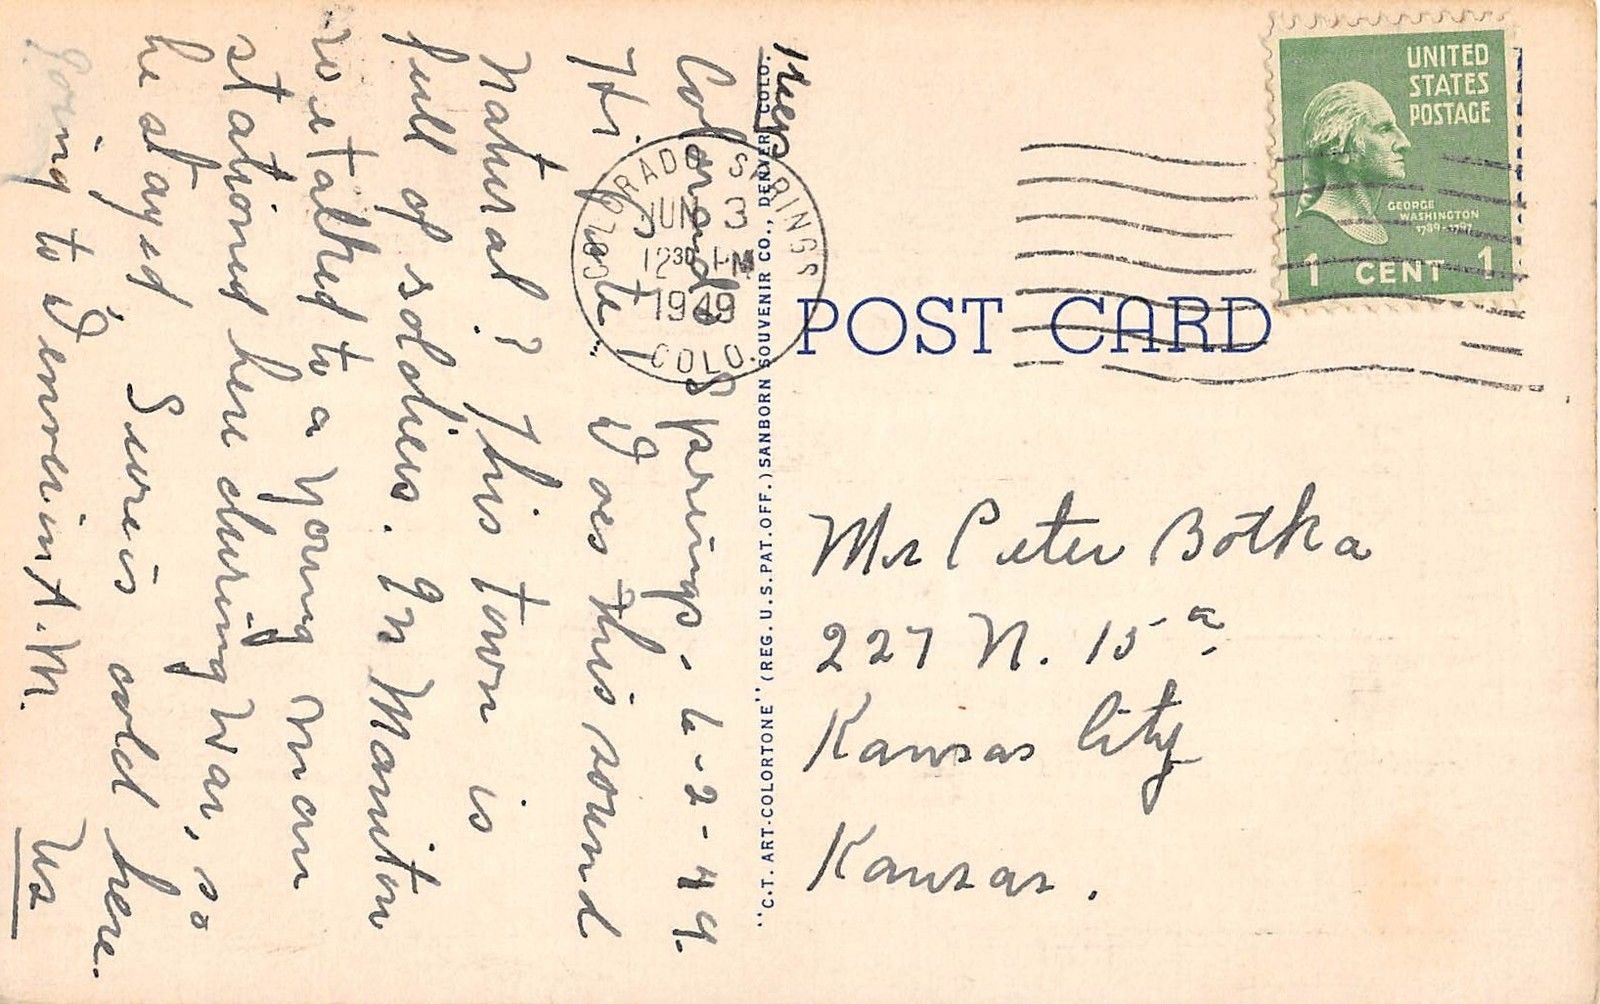 Colorado Springs. 6-2-49.
Hi. Pete. Does this sound
natural? This town is
full of soldiers. In Manitou
we talked to a young man
stationed here during war, so
he stayed. Sure is cold here.
going to Denver in A.M.
Us
COLORADO SPRINGS
JUN 3
12 30 PM
1949
COLO.
"C.T. ART-COLORTONE" (REG. U.S. PAT. OFF.) SANBORN SOUVENIR CO., DENVER, COLO.
UNITED
STATES
POSTAGE
GEORGE
WASHINGTON
1789-1797
1 CENT 1
POST CARD
Mr Peter Botka
227 N. 15
Kansas City
Kansas.